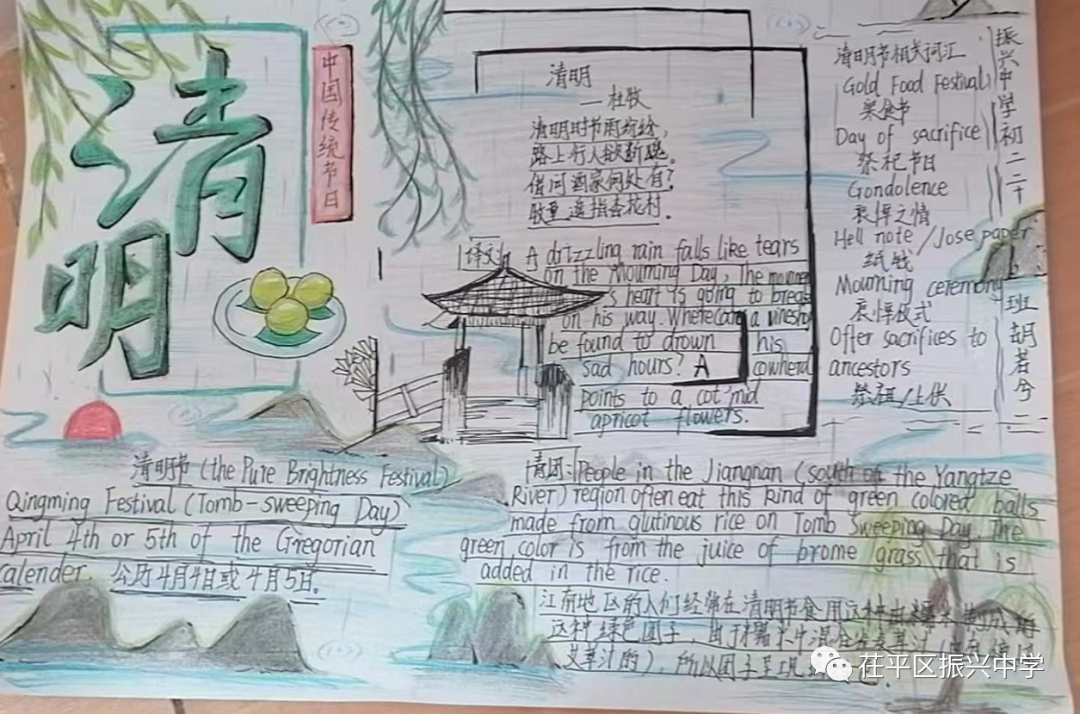 清明
中国传统节日
清明
—杜牧
清明时节雨纷纷,
路上行人欲断魂。
借问酒家何处有?
牧童遥指杏花村.
译文: A drizzling rain falls like tears
on the Mourning Day, The mourner
's heart is going to break
on his way. Where can a wineshop
be found to drown his
sad hours? A cowherd
points to a cot 'mid
apricot flowers.
清明节相关词汇
Gold Food Festival
寒食节
Day of sacrifice
祭祀节日
Gondolence
哀悼之情
Hell note / Jose paper
纸钱
Mourning ceremony
哀悼仪式
Offer sacrifices to
ancestors
祭祖/上供
振兴中学初二二十
班胡若兮二
清明节 (the Pure Brightness Festival)
Qingming Festival (Tomb-sweeping Day)
April 4th or 5th of the Gregorian
calender. 公历4月4日或4月5日.
青团: People in the Jiangnan (south of the Yangtze
River) region often eat this kind of green colored balls
made from glutinous rice on Tomb Sweeping Day. The
green color is from the juice of brome grass that is
added in the rice.
江南地区的人们经常在清明节食用这种由糯米
这种绿色团子, 由于糯米中混
艾草汁的), 所以团子呈现
茌平区振兴中学